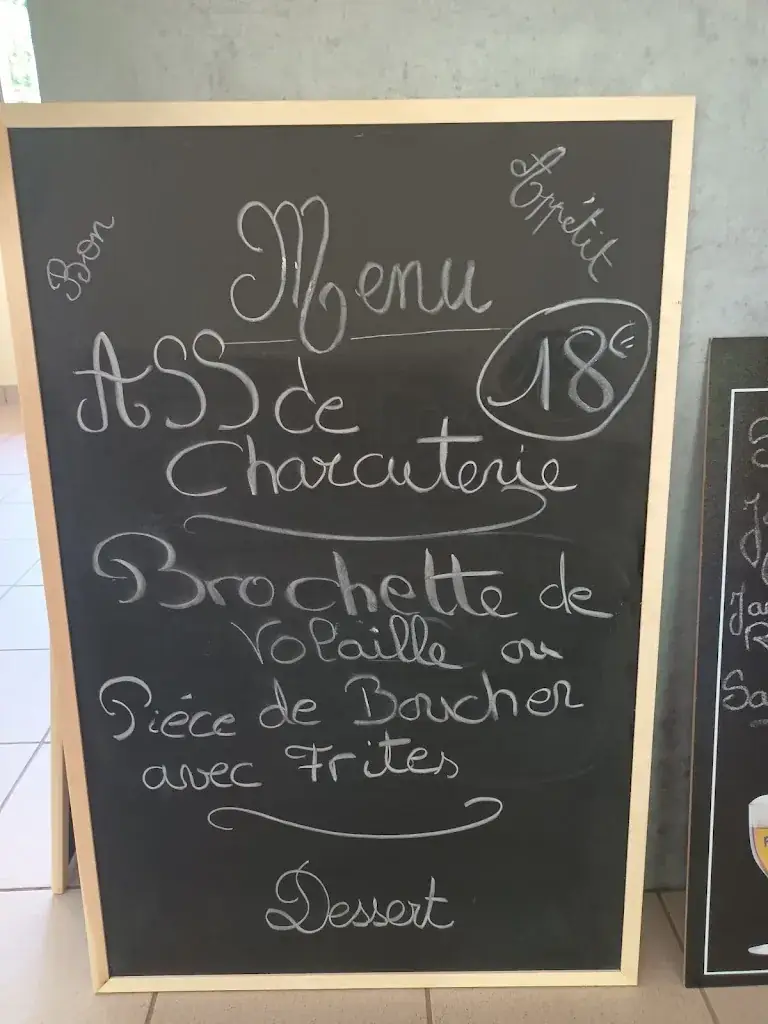 Bon
Appétit
Menu
18€
ASS de
Charcuterie
Brochette de
Volaille ou
Piéce de Boucher
avec Frites
Dessert